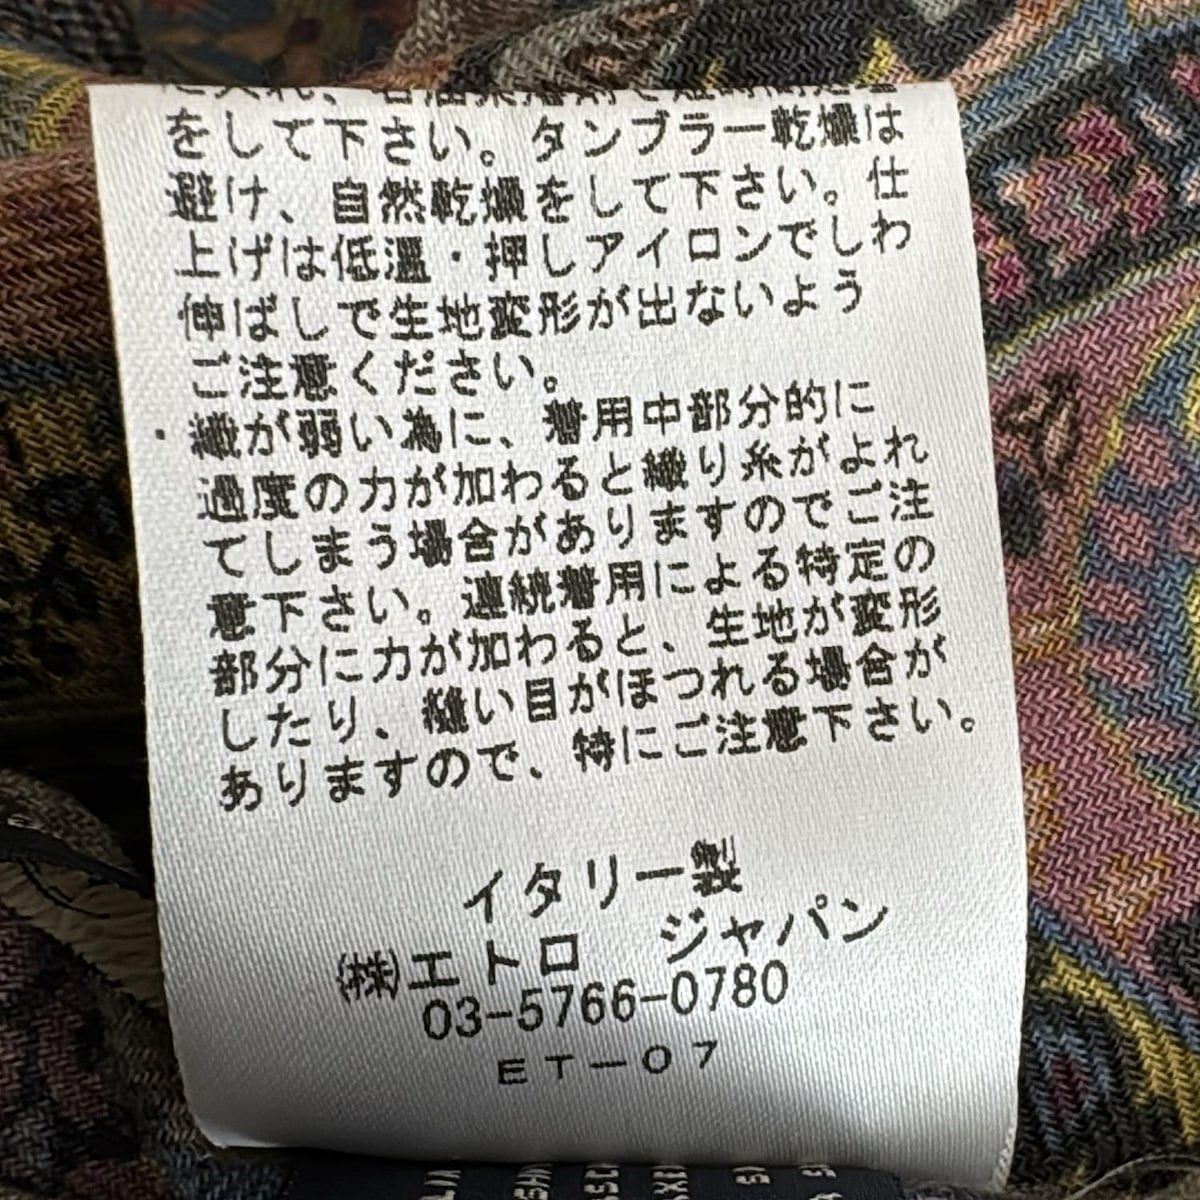 をして下さい。タンブラー乾燥は
避け、自然乾燥をして下さい。仕
上げは低温・押しアイロンでしわ
伸ばしで生地変形が出ないよう
ご注意ください。
・織が弱い為に、着用中部分的に
過度の力が加わると織り糸がよれ
てしまう場合がありますのでご注
意下さい。連続着用による特定の
部分に力が加わると、生地が変形
したり、縫い目がほつれる場合が
ありますので、特にご注意下さい。
イタリー製
㈱エトロ ジャパン
03-5766-0780
ET-07